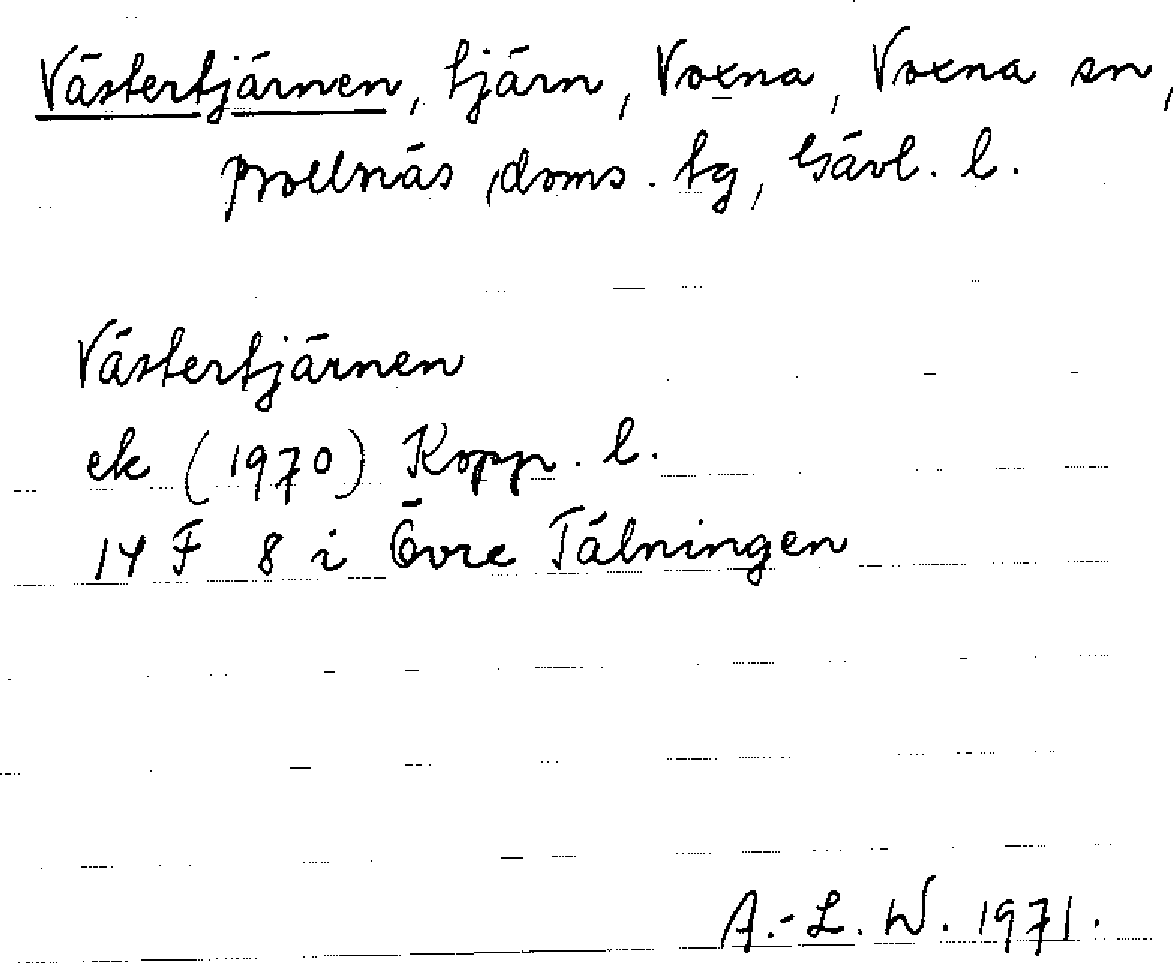 Västertjärnen, tjärn, Voxna, Voxna sn,
Bollnäs doms. tg, Gävl. l.
Västertjärnen
ek (1970) Kopp. l.
14 F 8 i Övre Tälningen
A.-L. W. 1971.